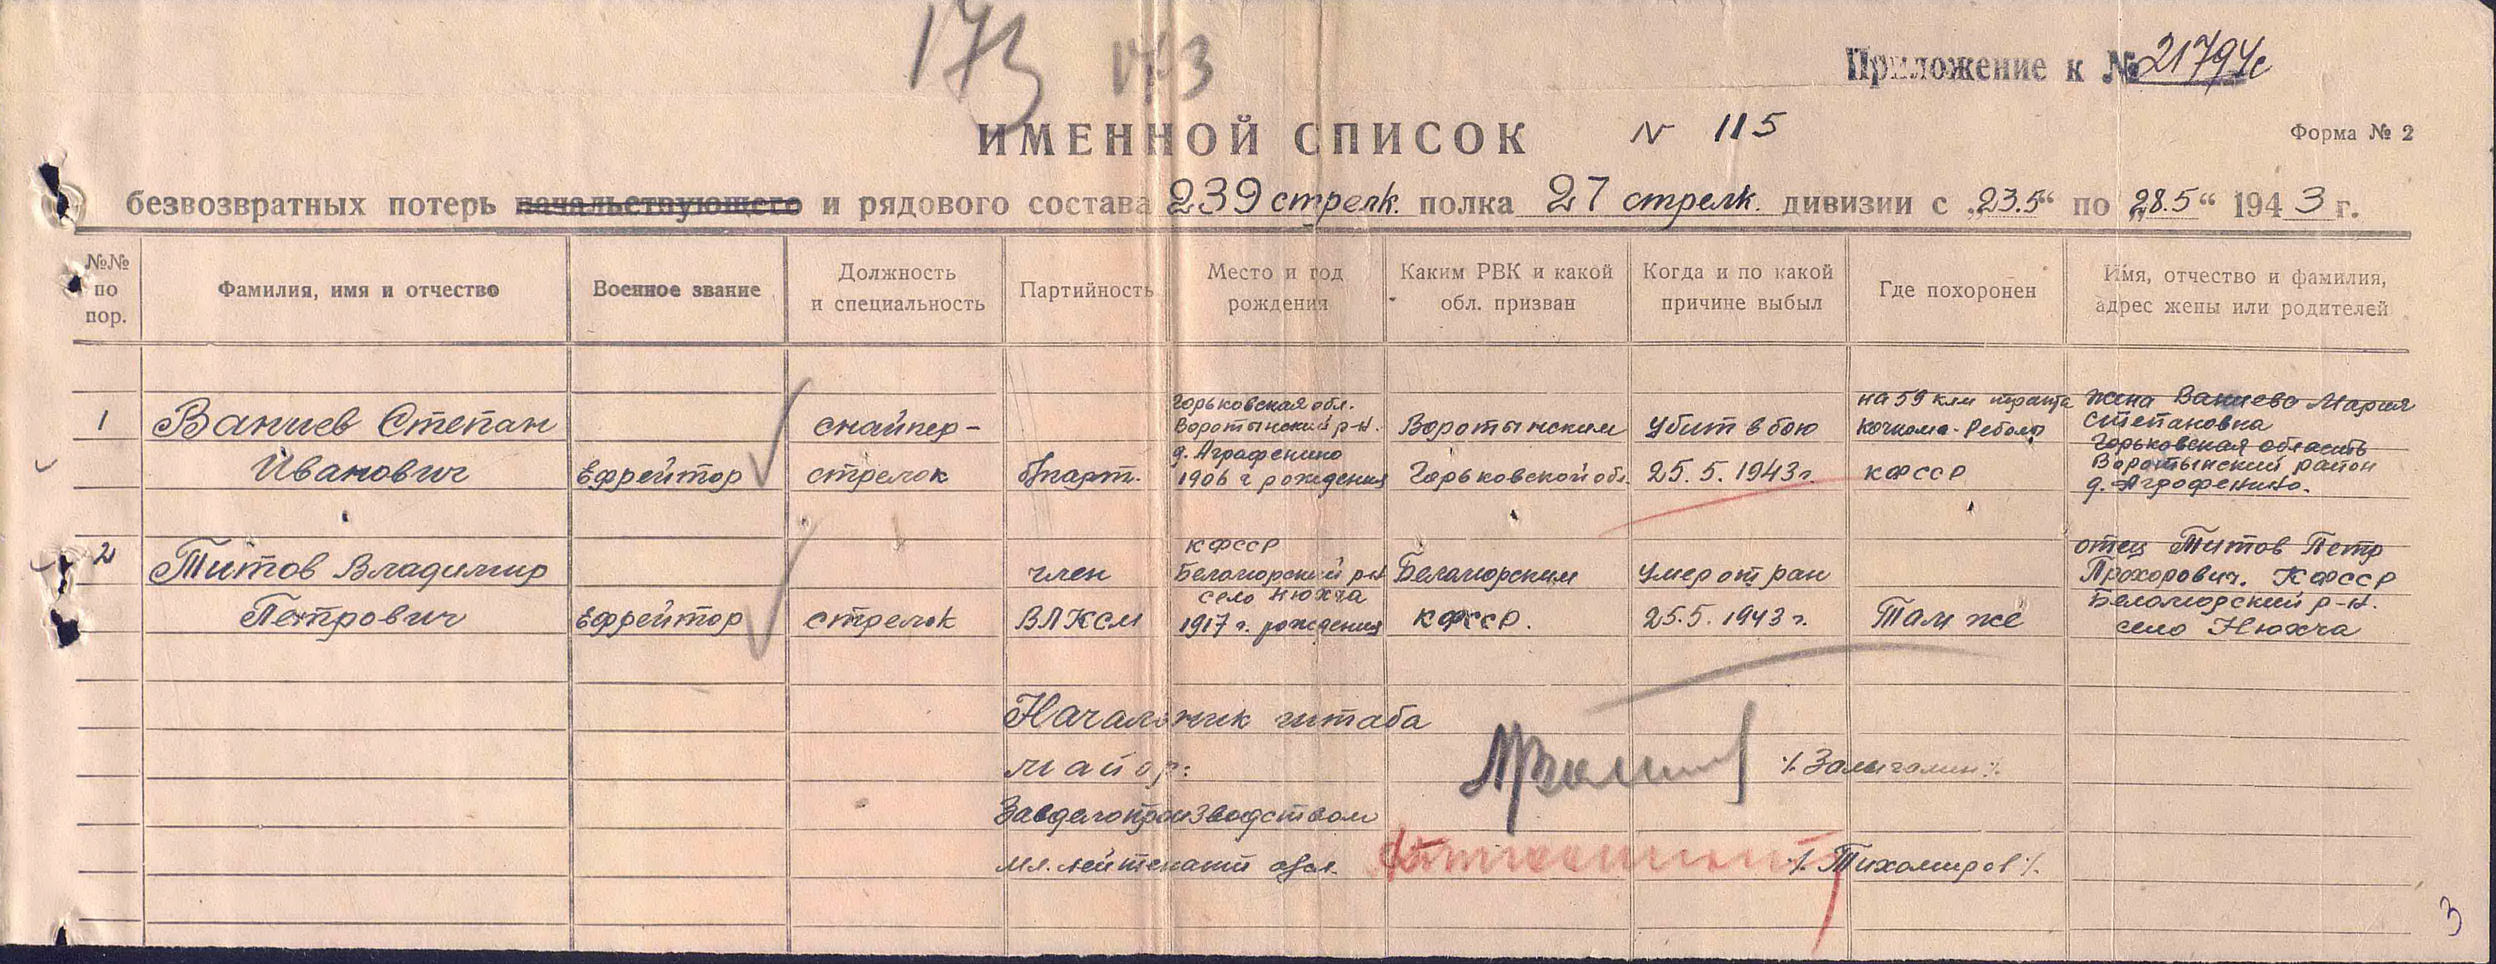 173 173
Приложение к № 21794с
ИМЕННОЙ СПИСОК N 115
Форма № 2
безвозвратных потерь начальствующего и рядового состава 239 стрелк. полка 27 стрелк. дивизии с „23.5“ по „28.5“ 1943 г.
№№ по пор.
Фамилия, имя и отчество
Военное звание
Должность и специальность
Партийность
Место и год рождения
Каким РВК и какой обл. призван
Когда и по какой причине выбыл
Где похоронен
Имя, отчество и фамилия, адрес жены или родителей
1
Ваниев Степан
Иванович
Ефрейтор
снайпер-
стрелок
б/парт.
Горьковская обл.
Воротынский р-н.
д. Аграфенино
1906 г рождения
Воротынским
Горьковской обл.
Убит в бою
25.5.1943г.
на 59 клм тракта
Кочкома-Реболы
КФССР
жена Ваниева Мария
Степановна
Горьковская область
Воротынский район
д. Агрофенино.
2
Титов Владимир
Петрович
Ефрейтор
стрелок
член
ВЛКСМ
КФССР
Беломорский р-н
село Нюхча
1917 г. рождения
Беломорским
КФССР.
Умер от ран
25.5.1943 г.
Там же
отец Титов Петр
Прохорович. КФССР
Беломорский р-н.
село Нюхча
Начальник штаба
майор:
Завделопроизводством
мл. лейтенант адм. /Тихомиров/.
3